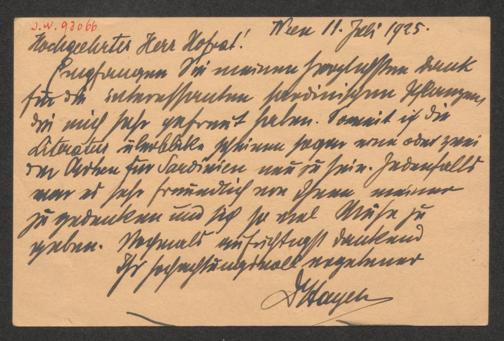 J.W. 93066
Wien 11. Juli 1925.
Hochgeehrter Herr Hofrat!
Empfangen Sie meinen herzlichsten Dank
für die interessanten sardinischen Pflanzen,
die mich sehr gefreut haben. Soweit ich die
Literatur überblicke scheinen sogar eine oder zwei
der Arten für Sardinien neu zu sein. Jedenfalls
war es sehr freundlich von Ihnen meiner
zu gedenken und sich so viel Mühe zu
geben. Nochmals aufrichtigst dankend
Ihr hochachtungsvoll ergebener
Dr Hayek